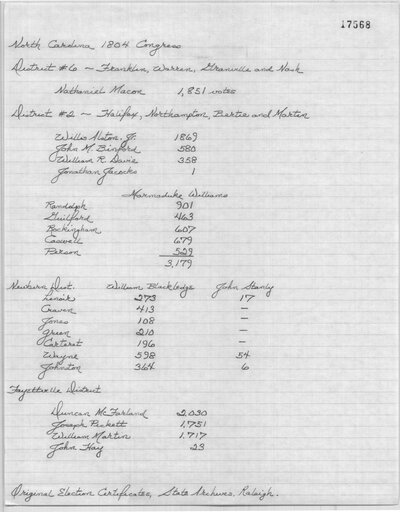 17568
North Carolina 1804 Congress
District #6 ~ Franklin, Warren, Granville and Nash
Nathaniel Macon 1,851 votes
District #2 ~ Halifax, Northampton, Bertie and Martin
Willis Alston, Jr. 1869
John M. Binford 580
William R. Davie 358
Jonathan Jacocks 1
Marmaduke Williams
Randolph 901
Guilford 463
Rockingham 607
Caswell 679
Person 529
3,179
Newbern Dist. William Blackledge John Stanly
Lenoir 273 17
Craven 413 —
Jones 108 —
Green 210 —
Carteret 196 —
Wayne 598 54
Johnston 364 6
Fayetteville District
Duncan McFarland 2,030
Joseph Pickett 1,751
William Martin 1,717
John Hay 23
Original Election Certificates, State Archives, Raleigh.